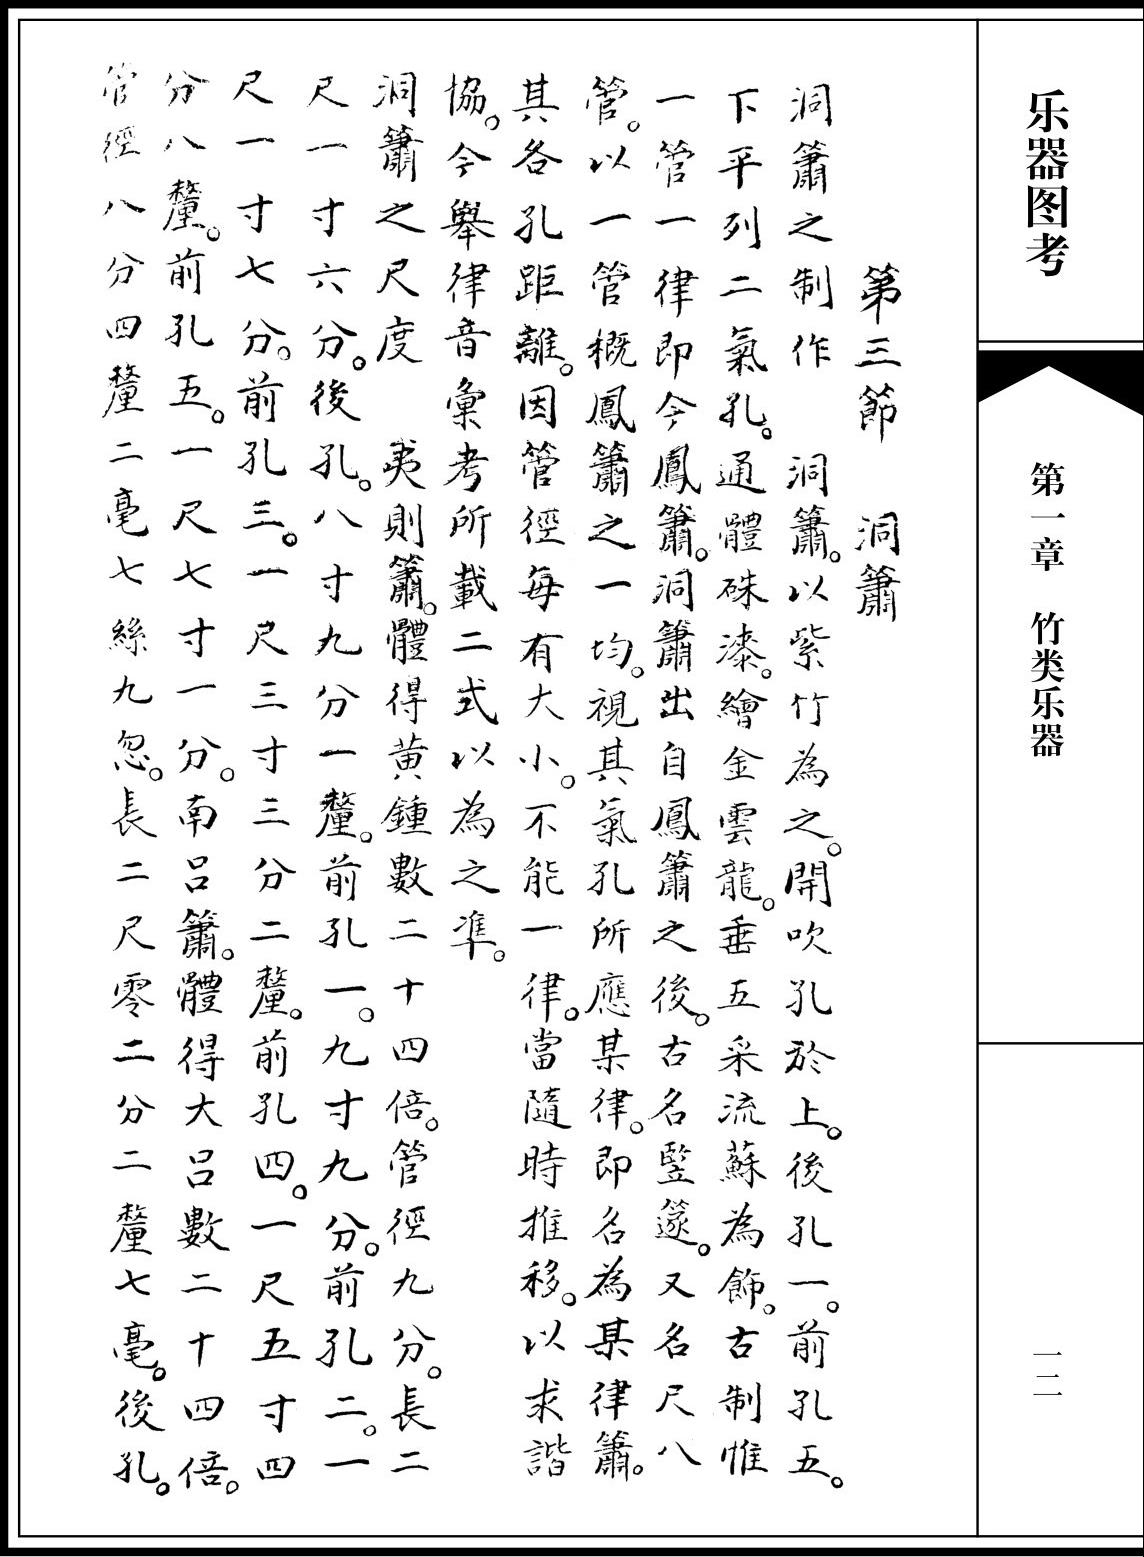 乐器图考
第一章 竹类乐器
一二
第三節 洞簫
洞簫之制作 洞簫。以紫竹為之。開吹孔於上。後孔一。前孔五。
下平列二氣孔。通體硃漆。繪金雲龍。垂五采流蘇為飾。古制惟
一管一律即今鳳簫。洞簫出自鳳簫之後。古名豎篴。又名尺八
管。以一管概鳳簫之一均。視其氣孔所應某律。即名為某律簫。
其各孔距離。因管徑每有大小。不能一律。當隨時推移。以求諧
協。今舉律音彙考所載二式以為之準。
洞簫之尺度 夷則簫。體得黃鍾數二十四倍。管徑九分。長二
尺一寸六分。後孔。八寸九分一釐。前孔一。九寸九分。前孔二。一
尺一寸七分。前孔三。一尺三寸三分二釐。前孔四。一尺五寸四
分八釐。前孔五。一尺七寸一分。南呂簫。體得大呂數二十四倍。
管徑八分四釐二毫七絲九忽。長二尺零二分二釐七毫。後孔。